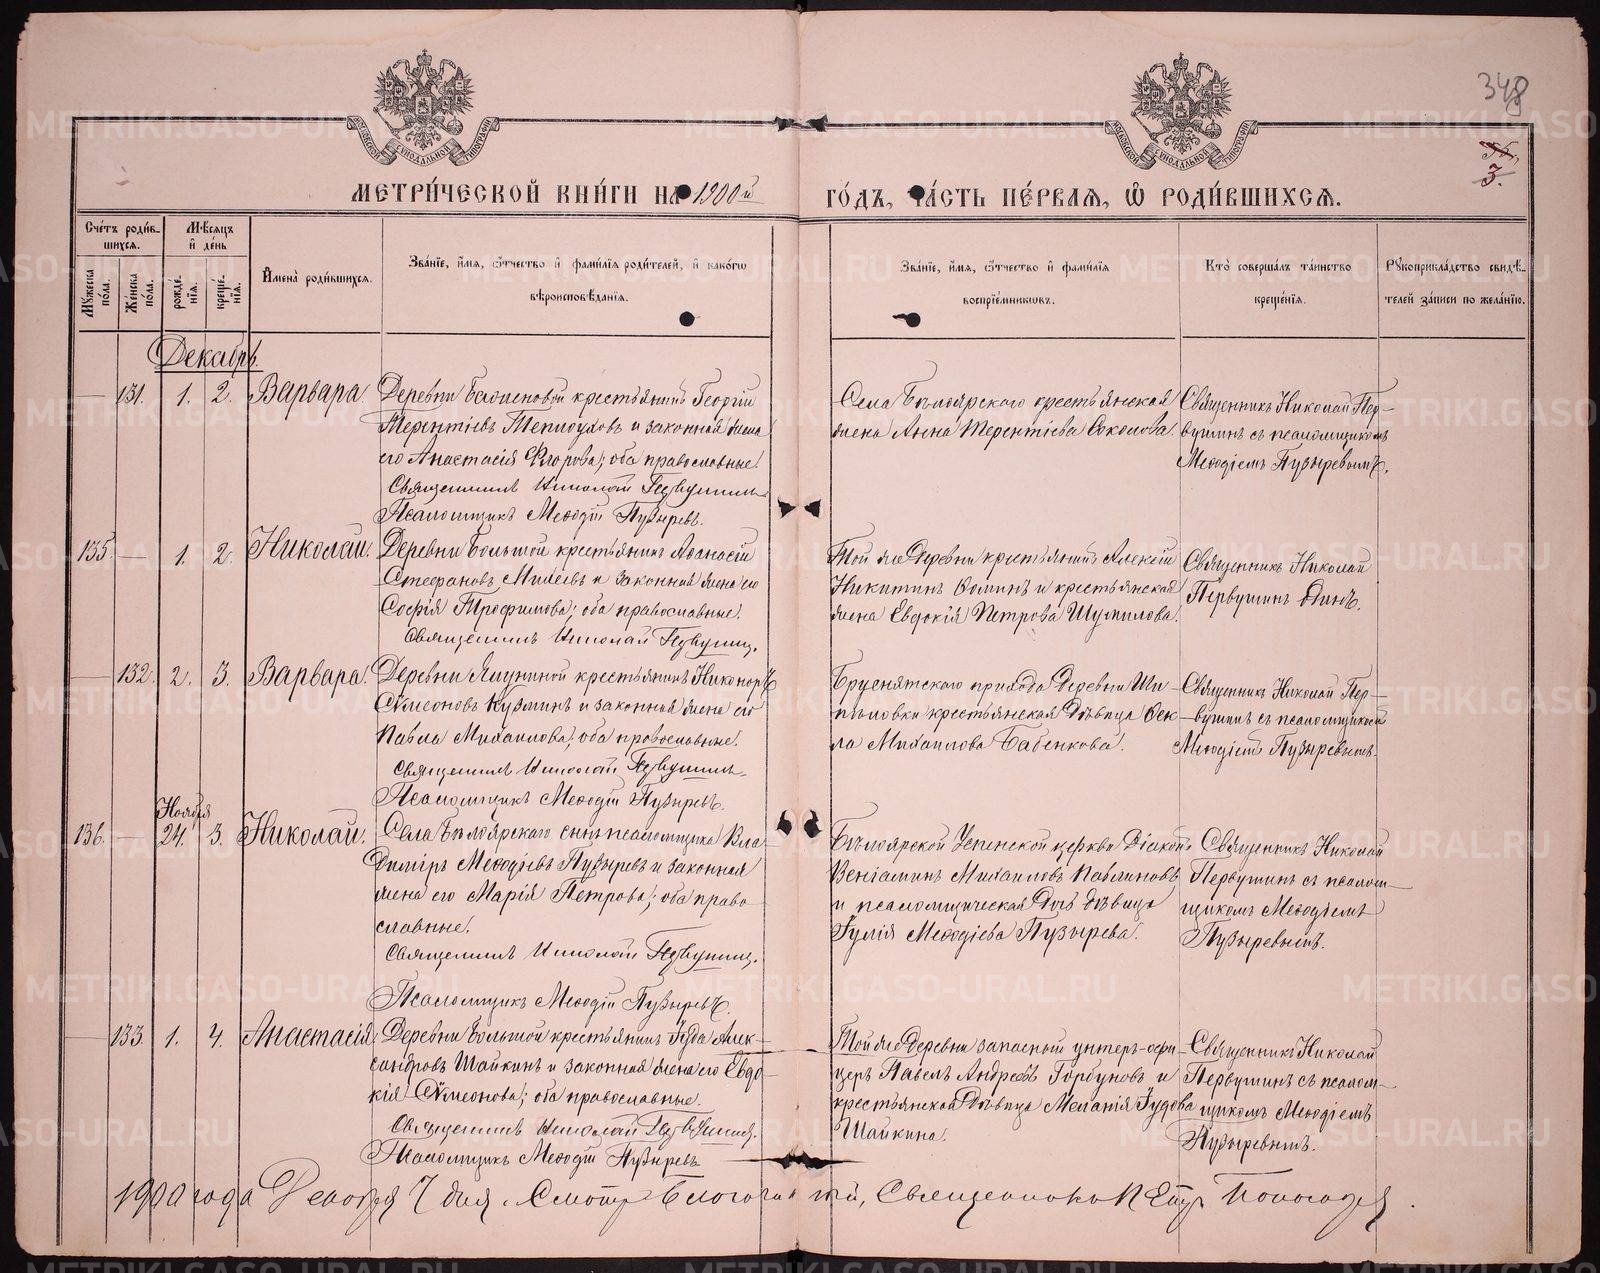 348
3.
МЕТРИ́ЧЕСКОЙ КНИ́ГИ НА 1900й ГО́ДЪ, ЧА́СТЬ ПЕ́РВАЯ, Ѡ РОДИ́ВШИХСЯ.
Сче́тъ роди́вшихся.
Мѣ́сяцъ и де́нь
Мꙋжеска по́ла.
Же́нска по́ла.
рожде́нїя.
креще́нїя.
И҆мена̀ роди́вшихся.
Зва́нїе, и҆́мя, ѻ҆́тчество и҆ фами́лїя роди́телей, и҆ како́гѡ
вѣроисповѣ́данїя.
Зва́нїе, и҆́мя, ѻ҆́тчество и҆ фами́лїя
воспрїе́мниковъ.
Кто̀ соверша́лъ та́инство
креще́нїя.
Рꙋкоприкла́дство свидѣ́-
телей за́писи по жела́нїю.
Декабрь.
131. 1. 2. Варвара.
Деревни крестьянинъ Георгій
Терентіевъ Теплоуховъ и законная жена
его Анастасія Ѳедорова; оба православные.
Священникъ Николай Первушинъ
Псаломщикъ Меѳодій Пузыревъ.
Села Бѣлоярскаго крестьянская
жена Анна Терентіева Соколова.
Священникъ Николай Пер-
вушинъ съ псаломщикомъ
Меѳодіемъ Пузыревымъ.
135. — 1. 2. Николай.
Деревни Большой крестьянинъ Аѳанасій
Стефановъ Михеевъ и законная жена его
Софія Трофимова; оба православные.
Священникъ Николай Первушинъ.
Той же деревни крестьянинъ Алексій
Никитинъ Ѳоминъ и крестьянская
жена Евдокія Петрова Шумилова.
Священникъ Николай
Первушинъ одинъ.
— 132. 2. 3. Варвара.
Деревни Ялуниной крестьянинъ Никаноръ
Сѵмеоновъ Кузминъ и законная жена его
Павла Михаилова; оба православные.
Священникъ Николай Первушинъ.
Псаломщикъ Меѳодій Пузыревъ.
Бруснятскаго прихода деревни Ши-
пѣловки крестьянская дѣвица Ѳек-
ла Михаилова Бабенкова.
Священникъ Николай Пер-
вушинъ съ псаломщикомъ
Меѳодіемъ Пузыревымъ.
Ноября
136. — 24. 3. Николай.
Села Бѣлоярскаго сынъ псаломщика Вла-
диміръ Меѳодіевъ Пузыревъ и законная
жена его Марія Петрова; оба право-
славные.
Священникъ Николай Первушинъ.
Псаломщикъ Меѳодій Пузыревъ.
Бѣлоярской Успенской церкви діаконъ
Веніаминъ Михаиловъ Павлиновъ
и псаломщическая дочь дѣвица
Іулія Меѳодіева Пузырева.
Священникъ Николай
Первушинъ съ псалом-
щикомъ Меѳодіемъ
Пузыревымъ.
— 133. 1. 4. Анастасія.
Деревни Большой крестьянинъ Іуда Алек-
сандровъ Шайкинъ и законная жена его Евдо-
кія Сѵмеонова; оба православные.
Священникъ Николай Первушинъ.
Псаломщикъ Меѳодій Пузыревъ
Той же деревни запасный унтеръ-офи-
церъ Павелъ Андреевъ Горбуновъ и
крестьянская дѣвица Меланія Іудова
Шайкина.
Священникъ Николай
Первушинъ съ псалом-
щикомъ Меѳодіемъ
Пузыревымъ.
1900 года Декабря 7 дня. Смотр. Благочинный, Священникъ Петръ
METRIKI.GASO-URAL.RU